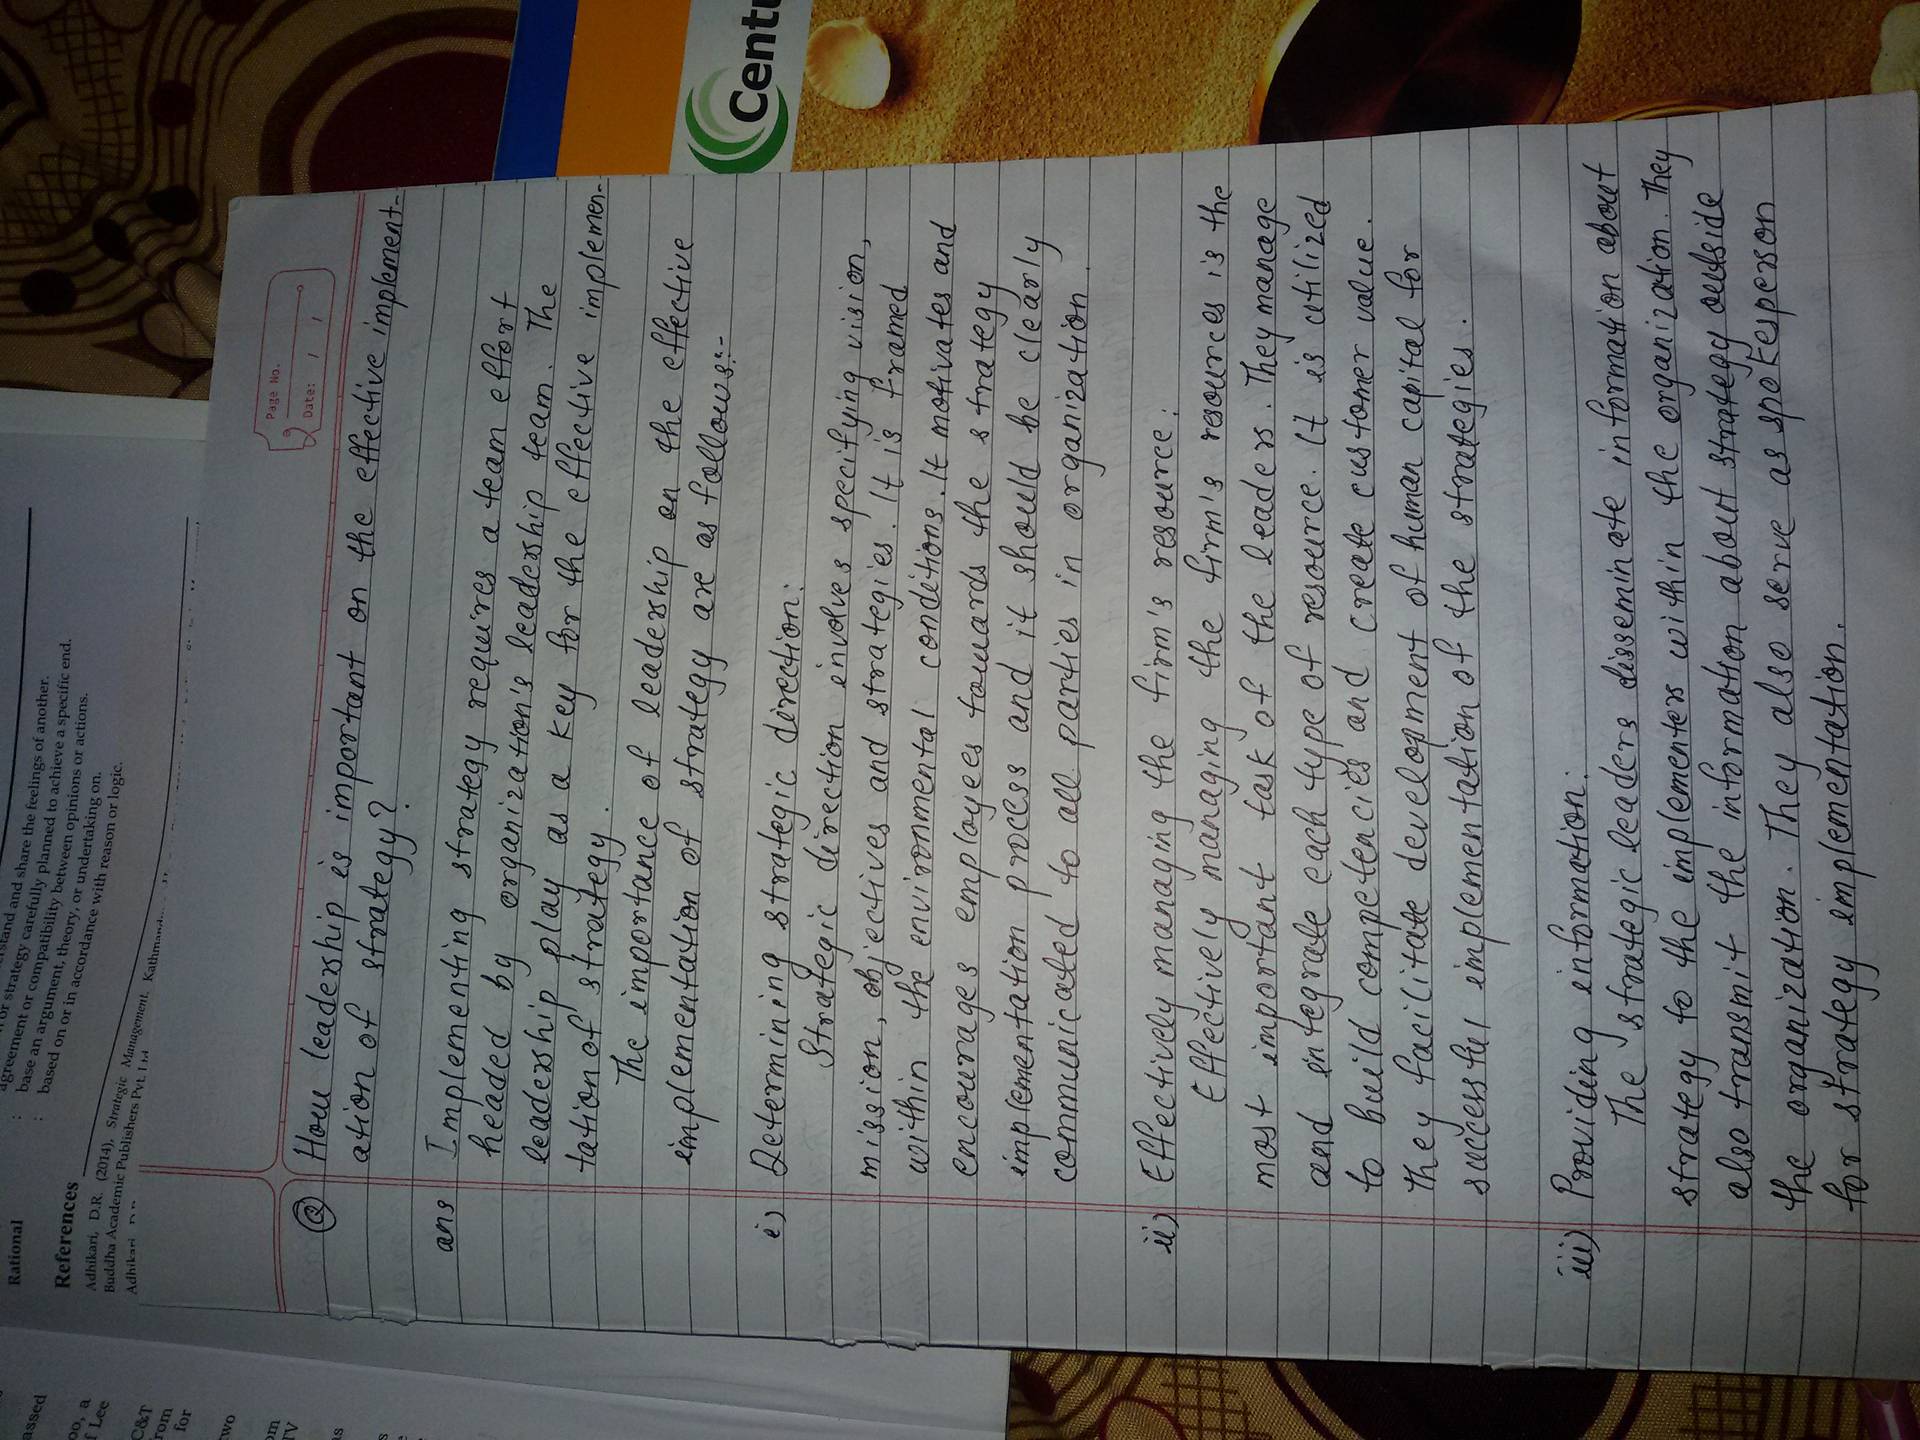 assed
oo, a
f Lee
C&T
rom
for
two
om
TV
as
Rational
:
:
stand and share the feelings of another.
or strategy carefully planned to achieve a specific end.
agreement or compatibility between opinions or actions.
base an argument, theory, or undertaking on.
based on or in accordance with reason or logic.
References
Adhikari, D.R. (2014), Strategic Management. Kathmandu
Buddha Academic Publishers Pvt. Ltd
Adhikari
Page No.
Date: / /
Q How leadership is important on the effective implement-
ation of strategy?
ans Implementing strategy requires a team effort
headed by organization's leadership team. The
leadership play as a key for the effective implemen-
tation of strategy.
The importance of leadership on the effective
implementation of strategy are as follows:-
i) Determining strategic direction:
Strategic direction involves specifying vision,
mission, objectives and strategies. It is framed
within the environmental conditions. It motivates and
encourages employees towards the strategy
implementation process and it should be clearly
communicated to all parties in organization.
ii) Effectively managing the firm's resource:
Effectively managing the firm's resources is the
most important task of the leaders. They manage
and integrate each type of resource. It is utilized
to build competencies and create customer value.
They facilitate development of human capital for
successful implementation of the strategies.
iii) Providing information:
The strategic leaders disseminate information about
strategy to the implementers within the organization. They
also transmit the information about strategy outside
the organization. They also serve as spokesperson
for strategy implementation.
Centu